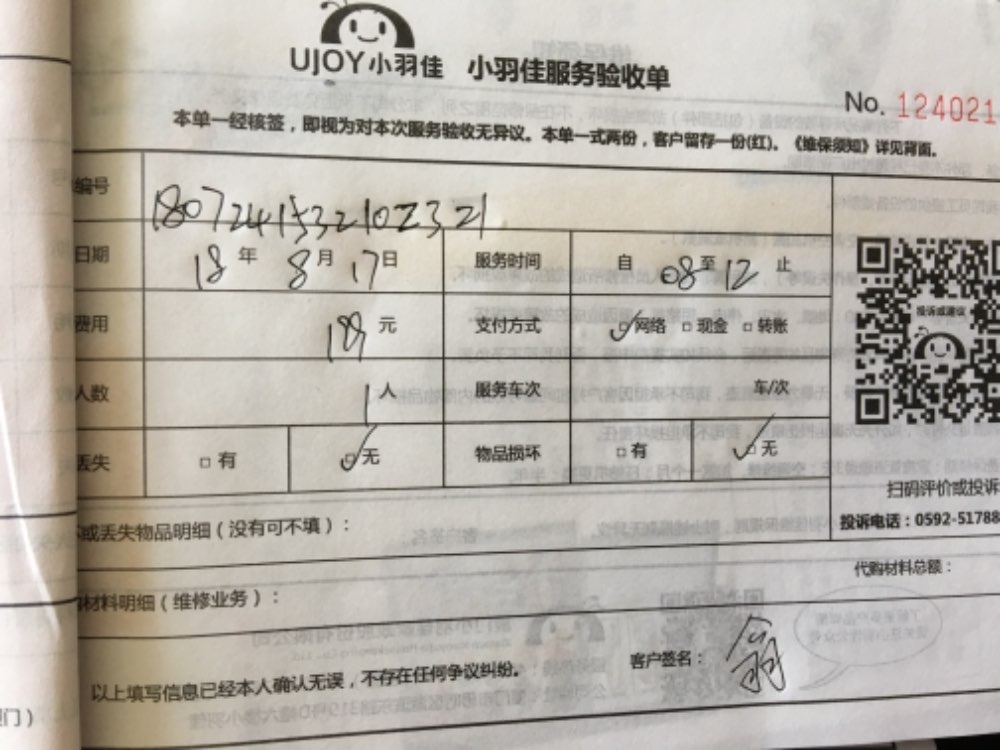 UJOY小羽佳 小羽佳服务验收单
No. 124021
本单一经核签，即视为对本次服务验收无异议。本单一式两份，客户留存一份(红)。《维保须知》详见背面。
编号 1807241532102321
日期 18年 8月 17日 服务时间 自 08 至 12 止
费用 元 支付方式 网络 现金 转账
投诉或建议
人数 1人 服务车次 车/次
丢失 有 无 物品损坏 有 无
扫码评价或投诉
或丢失物品明细（没有可不填）：
投诉电话：0592-51788
代购材料总额：
材料明细（维修业务）：
以上填写信息已经本人确认无误，不存在任何争议纠纷。 客户签名：
门）